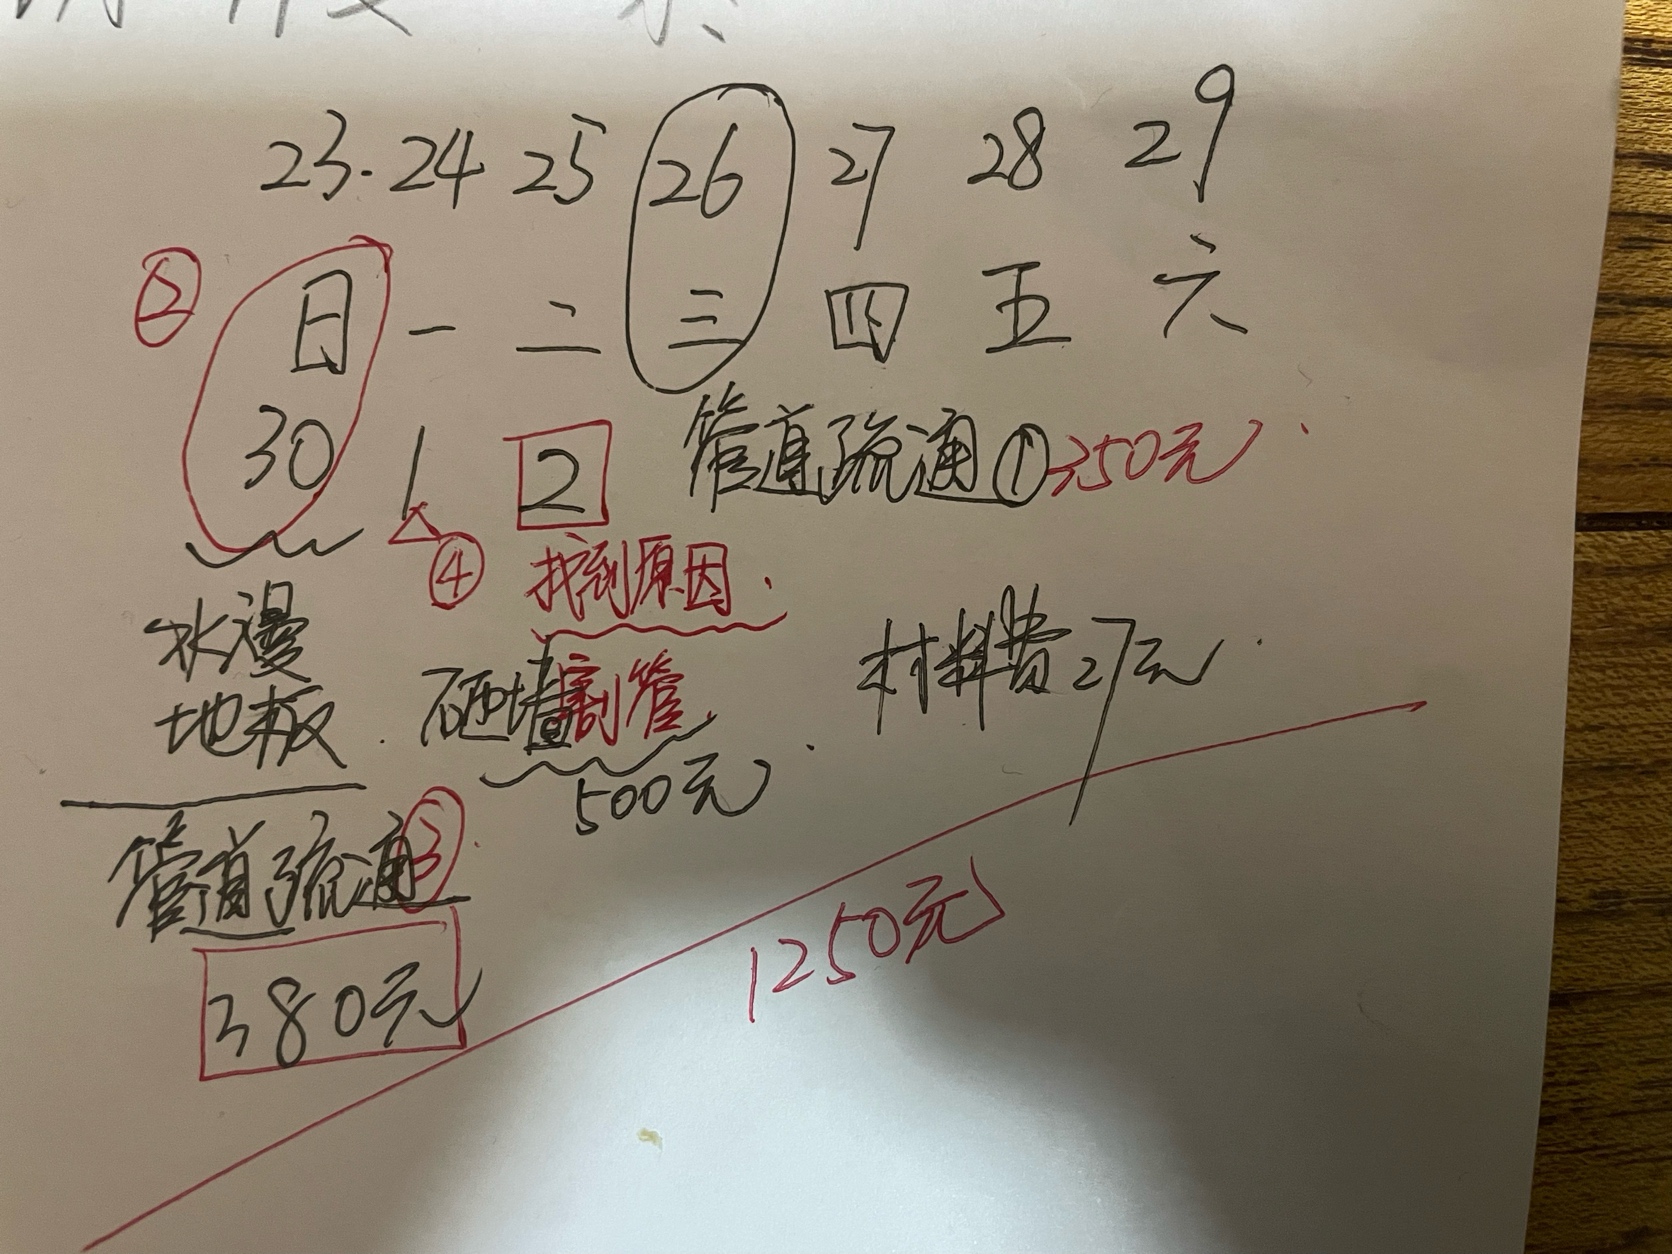 23. 24 25 26 27 28 29
② 日 一 二 三 四 五 六
30 1 2 管道疏通①350元
④ 找到原因.
水漫
地板. 砸墙割管 材料费27元.
500元.
管道疏通③
380元
1250元